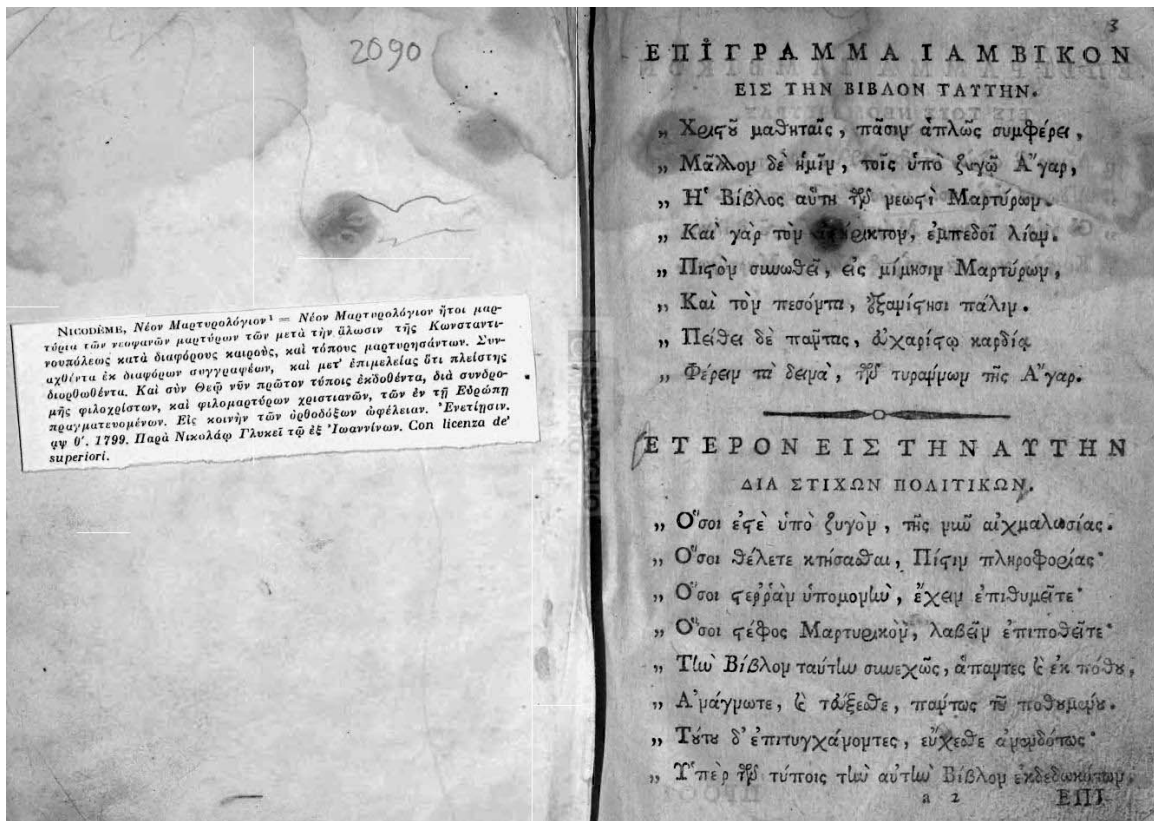 2090
NICODÈME, Νέον Μαρτυρολόγιον¹ = Νέον Μαρτυρολόγιον ἤτοι μαρ-
τύρια τῶν νεοφανῶν μαρτύρων τῶν μετὰ τὴν ἅλωσιν τῆς Κωνσταντι-
νουπόλεως κατὰ διαφόρους καιροὺς, καὶ τόπους μαρτυρησάντων. Συν-
αχθέντα ἐκ διαφόρων συγγραφέων, καὶ μετ' ἐπιμελείας ὅτι πλείστης
διορθωθέντα. Καὶ σὺν Θεῷ νῦν πρῶτον τύποις ἐκδοθέντα, διὰ συνδρο-
μῆς φιλοχρίστων, καὶ φιλομαρτύρων χριστιανῶν, τῶν ἐν τῇ Εὐρώπῃ
πραγματευομένων. Εἰς κοινὴν τῶν ὀρθοδόξων ὠφέλειαν. Ἐνετίῃσιν.
αψ θʹ. 1799. Παρὰ Νικολάῳ Γλυκεῖ τῷ ἐξ Ἰωαννίνων. Con licenza de'
superiori.
3
ΕΠΙΓΡΑΜΜΑ ΙΑΜΒΙΚΟΝ
ΕΙΣ ΤΗΝ ΒΙΒΛΟΝ ΤΑΥΤΗΝ.
„ Χριστοῦ μαθηταῖς, πᾶσιν ἁπλῶς συμφέρει,
„ Μᾶλλον δὲ ἡμῖν, τοῖς ὑπὸ ζυγῷ Ἄγαρ,
„ Ἡ Βίβλος αὕτη τῶν νεωστὶ Μαρτύρων.
„ Καὶ γὰρ τὸν ἐμπεδοῖ λίαν.
„ Πιστὸν συνωθεῖ, εἰς μίμησιν Μαρτύρων,
„ Καὶ τὸν πεσόντα, ἐξανίστησι πάλιν.
„ Πείθει δὲ πάντας, εὐχαρίστῳ καρδίᾳ
„ Φέρειν τὰ δεινὰ, τῶν τυράννων τῆς Ἄγαρ.
ΕΤΕΡΟΝ ΕΙΣ ΤΗΝ ΑΥΤΗΝ
ΔΙΑ ΣΤΙΧΩΝ ΠΟΛΙΤΙΚΩΝ.
„ Ὅσοι ἐστὲ ὑπὸ ζυγὸν, τῆς νῦν αἰχμαλωσίας.
„ Ὅσοι θέλετε κτήσασθαι, Πίστιν πληροφορίας·
„ Ὅσοι στερρὰν ὑπομονὴν, ἔχειν ἐπιθυμεῖτε·
„ Ὅσοι στέφος Μαρτυρικὸν, λαβεῖν ἐπιποθεῖτε·
„ Τὴν Βίβλον ταύτην συνεχῶς, ἅπαντες καὶ ἐκ πόθου,
„ Ἀνάγνωτε, καὶ τεύξεσθε, πάντως τοῦ ποθουμένου.
„ Τούτου δ' ἐπιτυγχάνοντες, εὔχεσθε ἀνενδότως·
„ Ὑπὲρ τῶν τύποις τὴν αὐτὴν Βίβλον ἐκδεδωκότων.
a 2 ΕΠΙ-